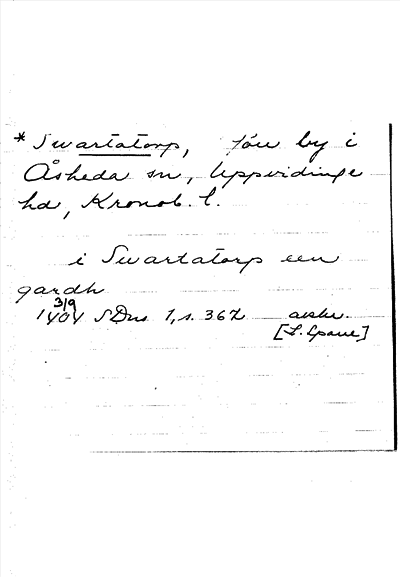 * Swartatorp, förr by i
Åsheda sn, Uppvidinge
hd, Kronob. l.
i Swartatorp een
gardh
3/9
1404 SDns 1, s. 367 avskr.